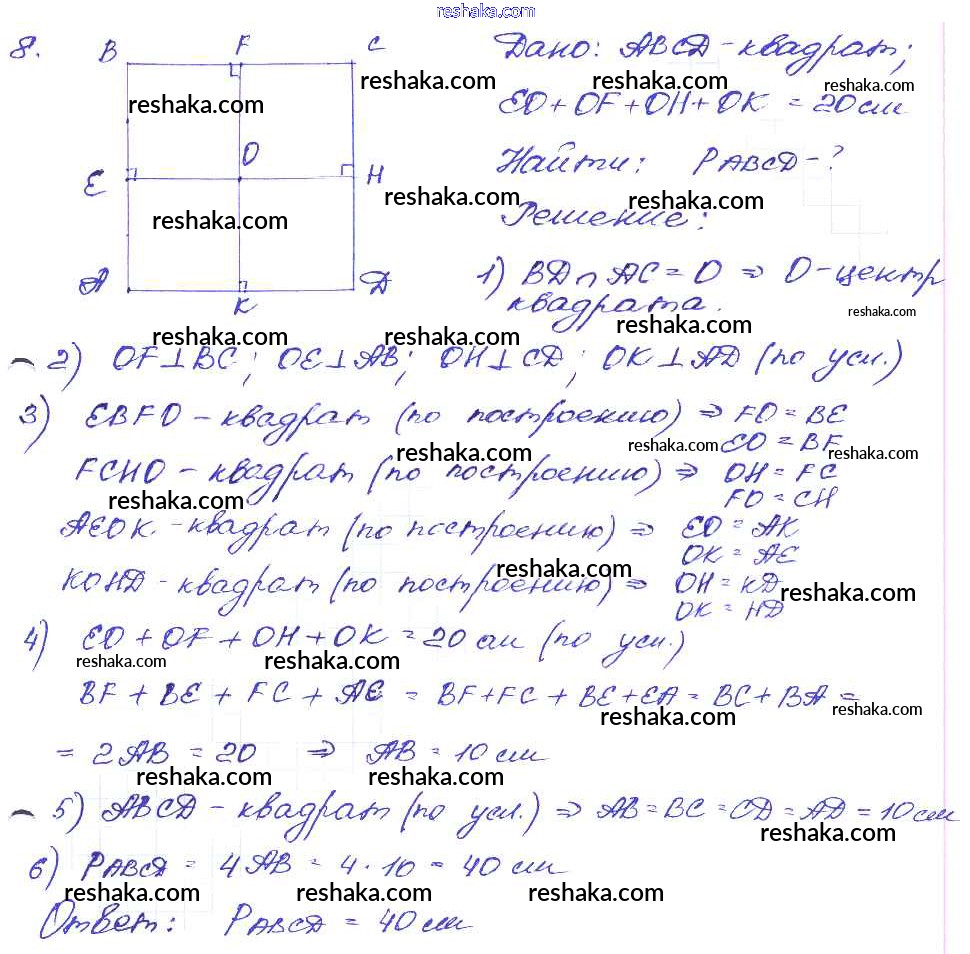 reshaka.com
8. B F C
Дано: ABCD - квадрат;
reshaka.com reshaka.com reshaka.com
EO + OF + OH + OK = 20 см
O
E H
Найти: PABCD - ?
reshaka.com reshaka.com reshaka.com
Решение:
A K D
1) BD ∩ AC = O ⇒ O - центр
квадрата.
reshaka.com reshaka.com
reshaka.com reshaka.com
2) OF ⊥ BC; OE ⊥ AB; OH ⊥ CD; OK ⊥ AD (по усл.)
3) EBFO - квадрат (по построению) ⇒ FO = BE
EO = BF
reshaka.com reshaka.com reshaka.com
FCHO - квадрат (по построению) ⇒ OH = FC
FO = CH
reshaka.com reshaka.com
AEOK - квадрат (по построению) ⇒ EO = AK
OK = AE
reshaka.com
KOHD - квадрат (по построению) ⇒ OH = KD
OK = HD
reshaka.com
4) EO + OF + OH + OK = 20 см (по усл.)
reshaka.com reshaka.com
BF + BE + FC + AE = BF + FC + BE + EA = BC + BA =
reshaka.com reshaka.com
= 2AB = 20 ⇒ AB = 10 см
reshaka.com reshaka.com
5) ABCD - квадрат (по усл.) ⇒ AB = BC = CD = AD = 10 см
reshaka.com
6) PABCD = 4AB = 4 · 10 = 40 см
reshaka.com reshaka.com reshaka.com
Ответ: PABCD = 40 см